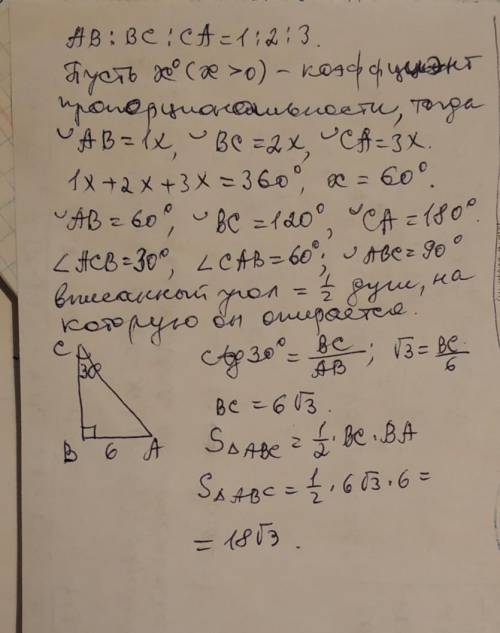 AB : BC : CA = 1 : 2 : 3.
Пусть x° (x > 0) - коэффициент
пропорциональности, тогда
◡AB = 1x, ◡BC = 2x, ◡CA = 3x.
1x + 2x + 3x = 360°, x = 60°.
◡AB = 60°, ◡BC = 120°, ◡CA = 180°.
∠ACB = 30°, ∠CAB = 60°; ◡ABC = 90°
вписанный угол = 1/2 дуги, на
которую он опирается.
C
30°
B 6 A
ctg 30° = BC/AB ; √3 = BC/6
BC = 6√3.
S△ABC = 1/2 · BC · BA
S△ABC = 1/2 · 6√3 · 6 =
= 18√3.